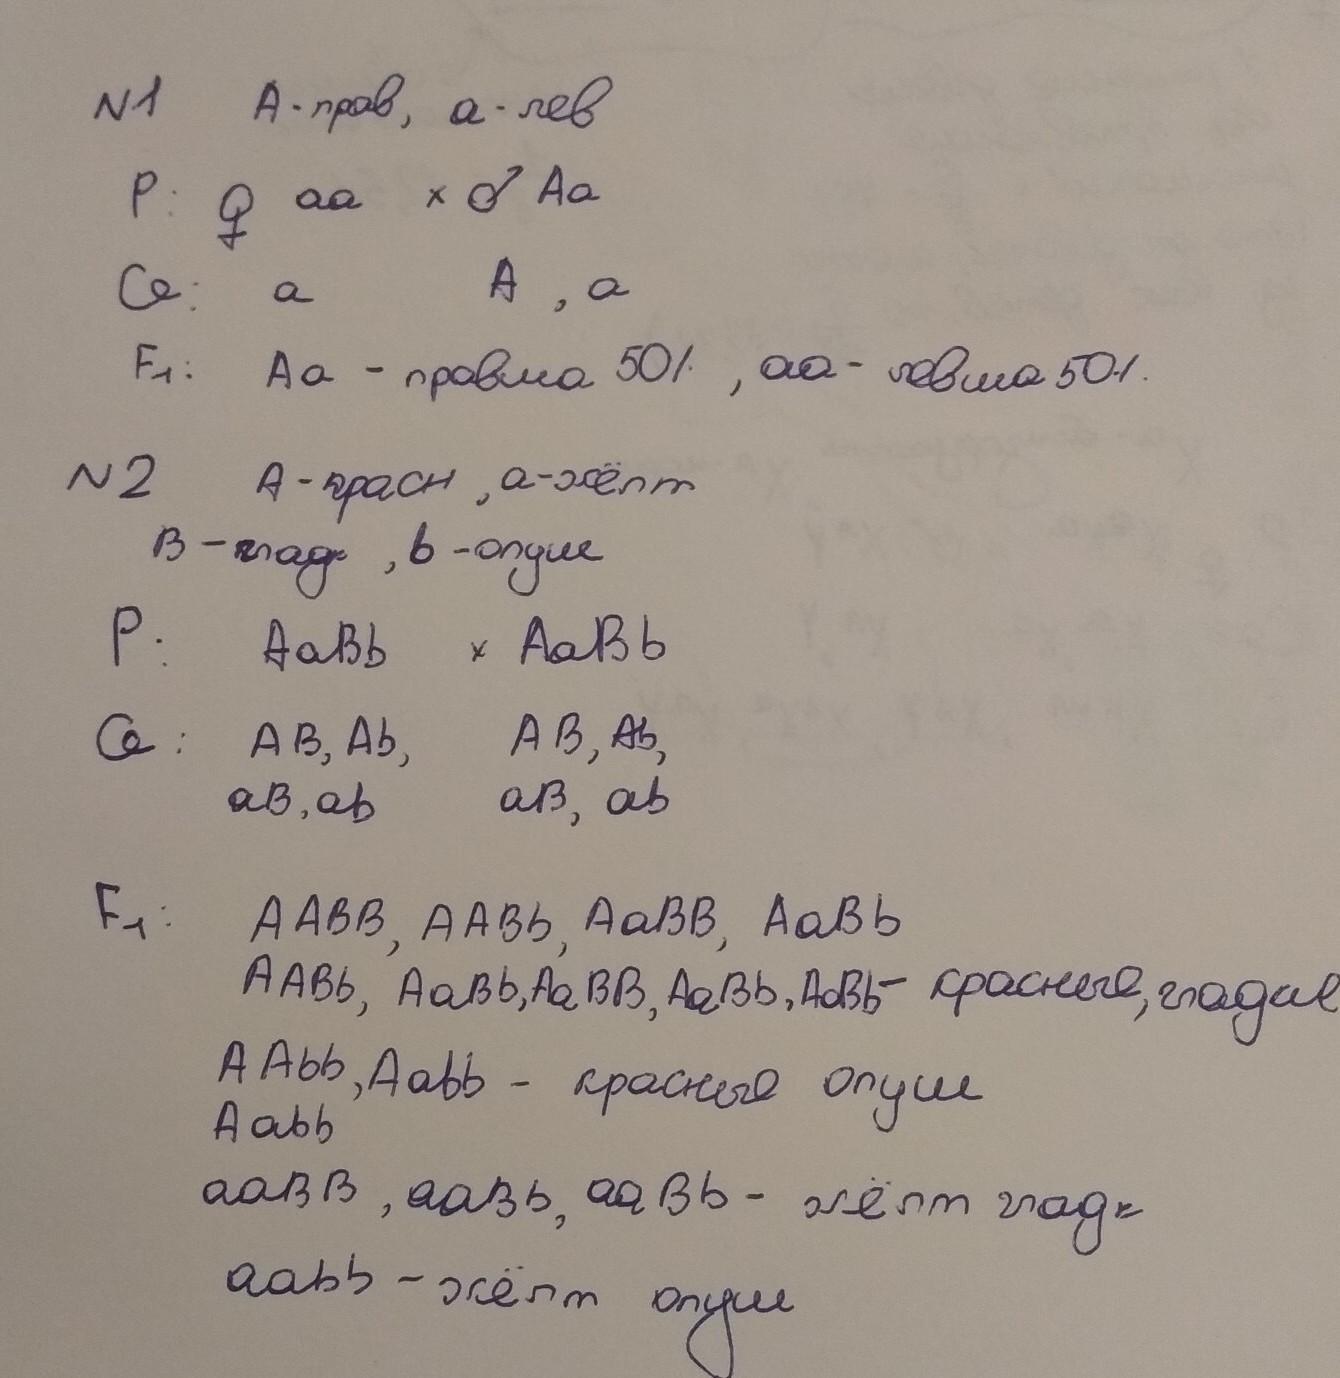 N1 A-прав, а-лев
P: ♀ аа × ♂ Аа
G: а А, а
F1: Аа - правша 50%, аа- левша 50%.
N2 А-красн, а-жёлт
B-гладк, b-опуш
P: AaBb × AaBb
G: AB, Ab, AB, Ab,
aB, ab aB, ab
F1: AABB, AABb, AaBB, AaBb
AABb, AaBb, AaBB, AaBb, AaBb- красные, гладкие
AAbb, Aabb - красные опуш
Aabb
aaBB, aaBb, aaBb - жёлт гладк
aabb - жёлт опуш